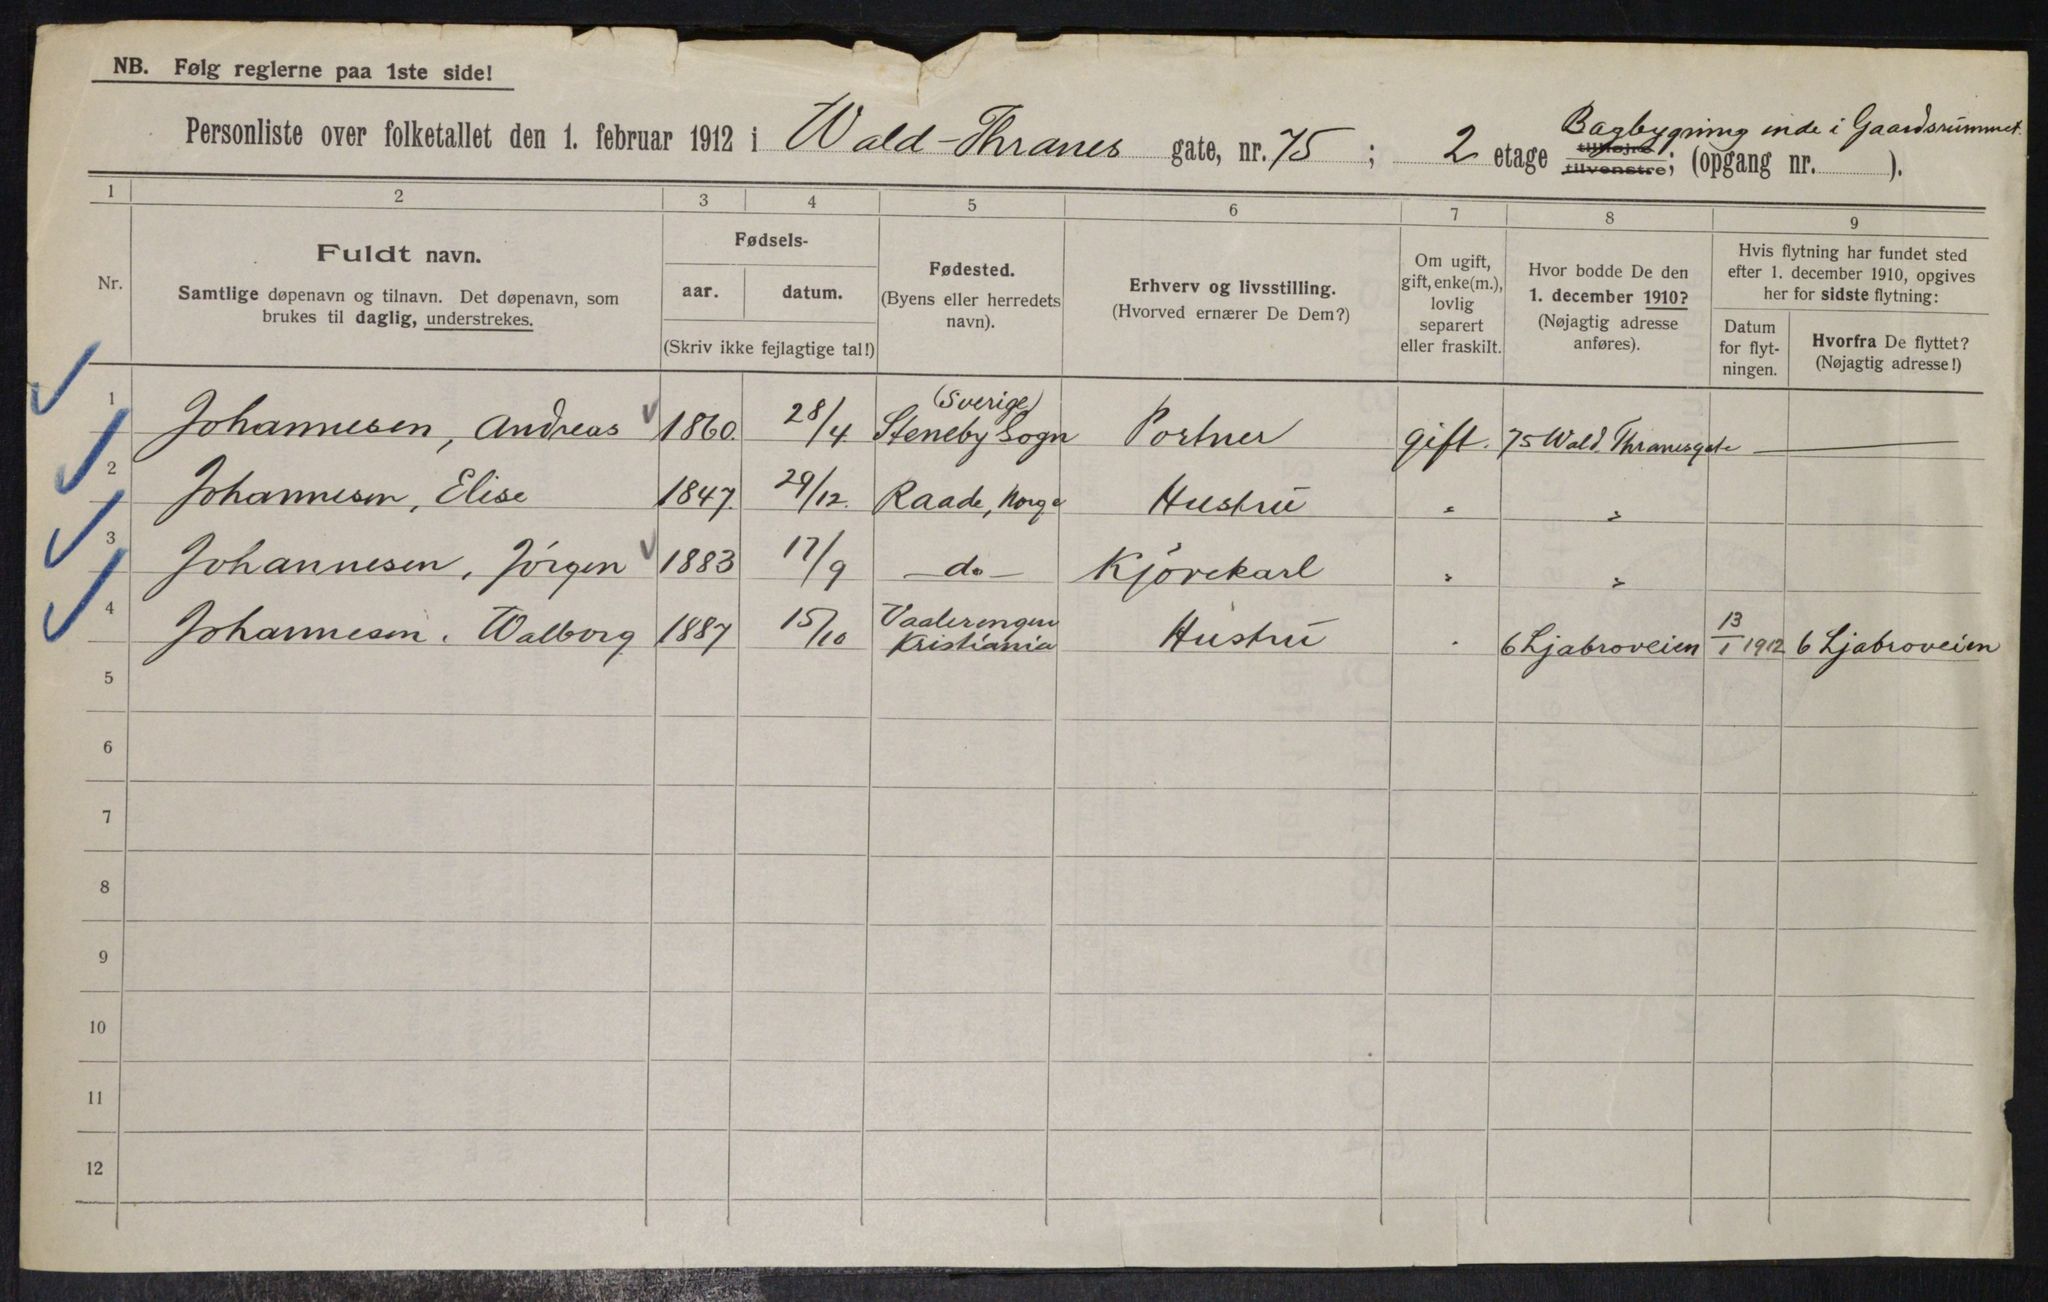 NB. Følg reglerne paa 1ste side!
Bagbygning inde i Gaardsrummet.
Personliste over folketallet den 1. februar 1912 i Wald-Thranes gate, nr. 75 ; 2 etage tilhøjre tilvenstre; (opgang nr. ).
1 2 3 4 5 6 7 8 9
Nr.
Fuldt navn.
Samtlige døpenavn og tilnavn. Det døpenavn, som
brukes til daglig, understrekes.
Fødsels-
aar. datum.
(Skriv ikke fejlagtige tal!)
Fødested.
(Byens eller herredets
navn).
Erhverv og livsstilling.
(Hvorved ernærer De Dem?)
Om ugift,
gift, enke(m.),
lovlig
separert
eller fraskilt.
Hvor bodde De den
1. december 1910?
(Nøjagtig adresse
anføres).
Hvis flytning har fundet sted
efter 1. december 1910, opgives
her for sidste flytning:
Datum
for flyt-
ningen.
Hvorfra De flyttet?
(Nøjagtig adresse!)
1 Johannesen, Andreas 1860. 28/4 (Sverige) Steneby Sogn Portner gift. 75 Wald Thranesgate —
2 Johannesen, Elise 1847. 29/12. Raade, Norge Hustru " "
3 Johannesen, Jörgen 1883 17/9 —do— Kjörekarl " "
4 Johannesen, Walborg 1887 15/10 Vaalerengen Kristiania Hustru " 6 Ljabroveien 13/1 1912 6 Ljabroveien
5
6
7
8
9
10
11
12